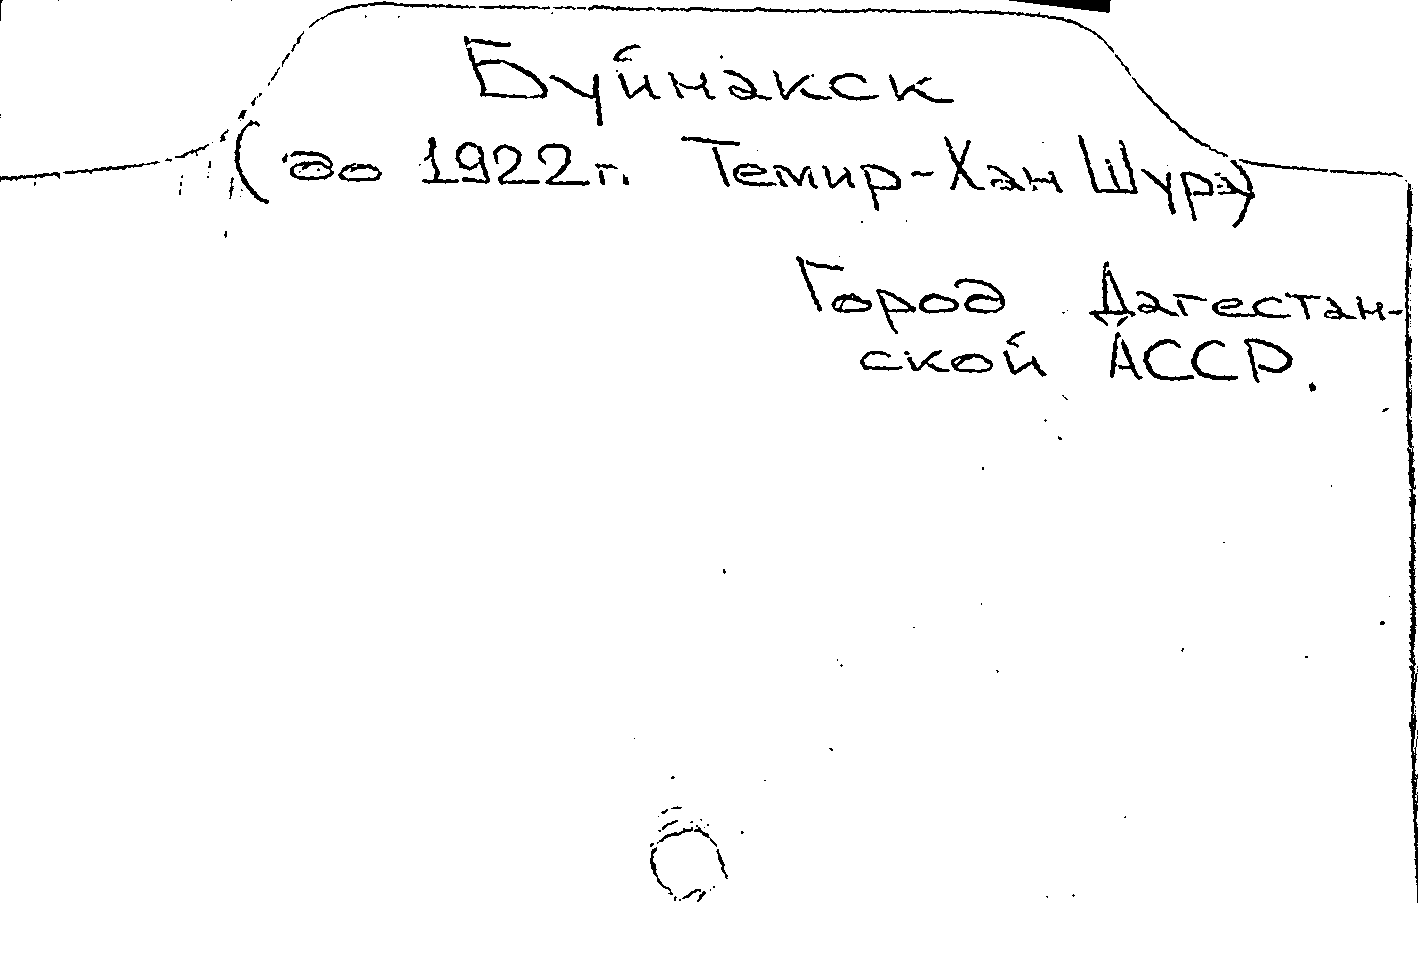 Буйнакск
(до 1922г. Темир-Хан Шура)
Город Дагестан-
ской АССР.